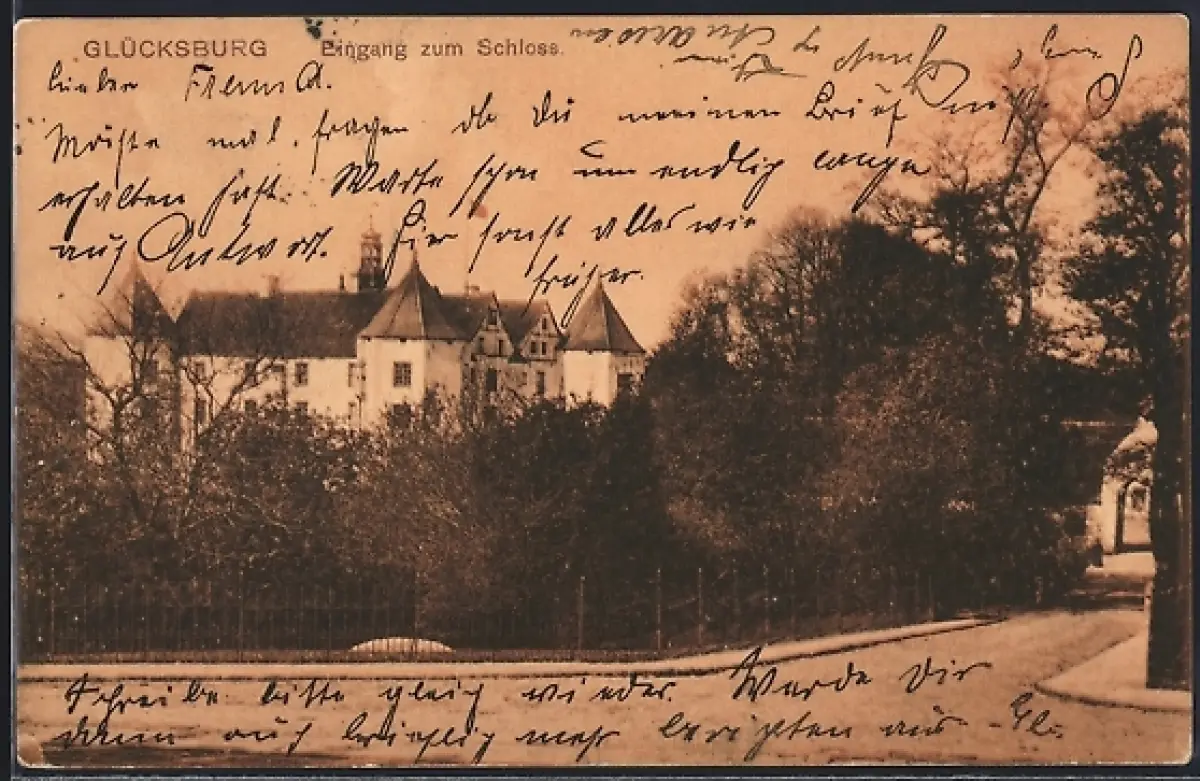 GLÜCKSBURG Eingang zum Schloss.
lieber Freund.
Möchte mal fragen ob Du meinen Brief nicht
erhalten hast. Warte schon unendlig lange
auf Antwort. Hier sonst alles wie
früher.
Schreibe bitte gleich wieder. Werde Dir
dann auch brieflig mehr berichten aus Glb.